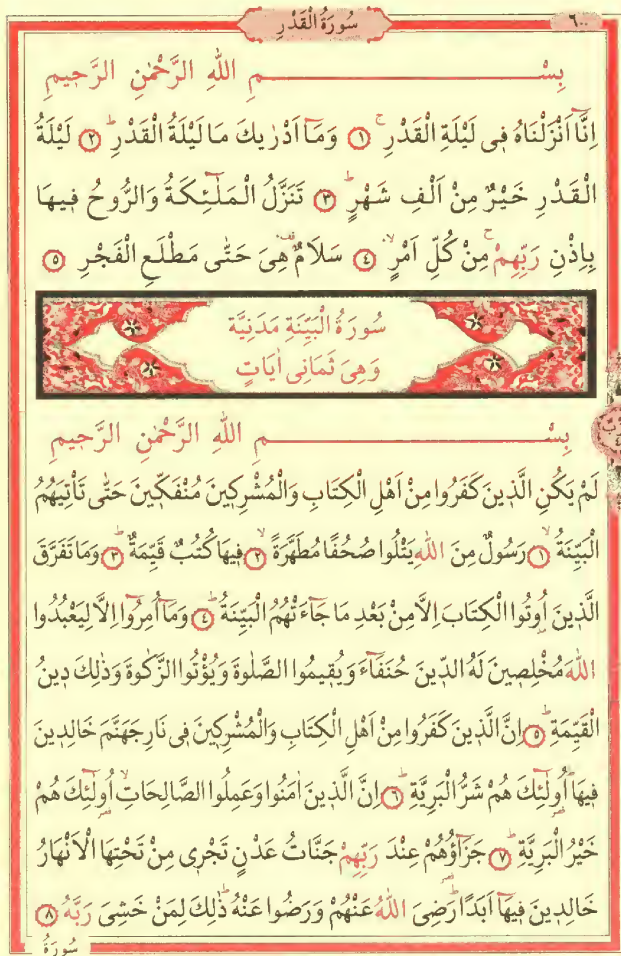 ٦٠٠
سُورَةُ الْقَدْرِ
بِسْــــــــــمِ اللهِ الرَّحْمٰنِ الرَّحِيمِ
اِنَّٓا اَنْزَلْنَاهُ فِى لَيْلَةِ الْقَدْرِۚ ١ وَمَٓا اَدْرٰيكَ مَا لَيْلَةُ الْقَدْرِۜ ٢ لَيْلَةُ
الْقَدْرِ خَيْرٌ مِنْ اَلْفِ شَهْرٍۜ ٣ تَنَزَّلُ الْمَلٰٓئِكَةُ وَالرُّوحُ فِيهَا
بِاِذْنِ رَبِّهِمْۚ مِنْ كُلِّ اَمْرٍۙ ٤ سَلَامٌ۠ هِىَ حَتّٰى مَطْلَعِ الْفَجْرِ ٥
سُورَةُ الْبَيِّنَةِ مَدَنِيَّة
وَهِىَ ثَمَانِى اٰيَاتٍ
بِسْــــــــــمِ اللهِ الرَّحْمٰنِ الرَّحِيمِ
لَمْ يَكُنِ الَّذِينَ كَفَرُوا مِنْ اَهْلِ الْكِتَابِ وَالْمُشْرِكِينَ مُنْفَكِّينَ حَتّٰى تَأْتِيَهُمُ
الْبَيِّنَةُۙ ١ رَسُولٌ مِنَ اللهِ يَتْلُوا صُحُفًا مُطَهَّرَةًۙ ٢ فِيهَا كُتُبٌ قَيِّمَةٌۜ ٣ وَمَا تَفَرَّقَ
الَّذِينَ اُو۫تُوا الْكِتَابَ اِلَّا مِنْ بَعْدِ مَا جَٓاءَتْهُمُ الْبَيِّنَةُۜ ٤ وَمَٓا اُمِرُٓوا اِلَّا لِيَعْبُدُوا
اللهَ مُخْلِصِينَ لَهُ الدِّينَ حُنَفَٓاءَ وَيُقِيمُوا الصَّلٰوةَ وَيُؤْتُوا الزَّكٰوةَ وَذٰلِكَ دِينُ
الْقَيِّمَةِۜ ٥ اِنَّ الَّذِينَ كَفَرُوا مِنْ اَهْلِ الْكِتَابِ وَالْمُشْرِكِينَ فِى نَارِ جَهَنَّمَ خَالِدِينَ
فِيهَاۜ اُو۬لٰٓئِكَ هُمْ شَرُّ الْبَرِيَّةِۜ ٦ اِنَّ الَّذِينَ اٰمَنُوا وَعَمِلُوا الصَّالِحَاتِۙ اُو۬لٰٓئِكَ هُمْ
خَيْرُ الْبَرِيَّةِۜ ٧ جَزَٓاؤُ۬هُمْ عِنْدَ رَبِّهِمْ جَنَّاتُ عَدْنٍ تَجْرِى مِنْ تَحْتِهَا الْاَنْهَارُ
خَالِدِينَ فِيهَٓا اَبَدًاۜ رَضِىَ اللهُ عَنْهُمْ وَرَضُوا عَنْهُۜ ذٰلِكَ لِمَنْ خَشِىَ رَبَّهُ ٨
سُورَةُ